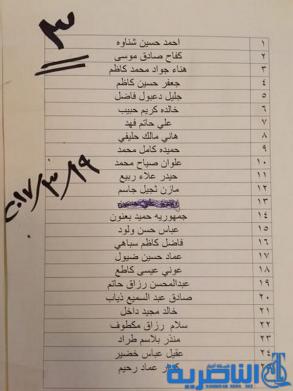 ١ احمد حسين شناوه
٢ كفاح صادق موسى
٣ هناء جواد محمد كاظم
٤ جعفر حسين كاظم
٥ جليل دعبول فاضل
٦ خالده كريم حبيب
٧ علي حاتم فهد
٨ هاني مالك حليفي
٩ حميده كامل محمد
١٠ علوان صباح محمد
١١ حيدر علاء ربيع
١٢ مازن ثجيل جاسم
١٣
١٤ جمهوريه حميد بعنون
١٥ عباس حسن ولود
١٦ فاضل كاظم سباهي
١٧ عماد حسين ضيول
١٨ عوني عيسى كاطع
١٩ عبدالمحسن رزاق حاتم
٢٠ صادق عبد السميع ذياب
٢١ خالد مجيد داخل
٢٢ سلام رزاق مكطوف
٢٣ منذر بلاسم طراد
٢٤ عقيل عباس خضير
عماد رحيم
الناصرية